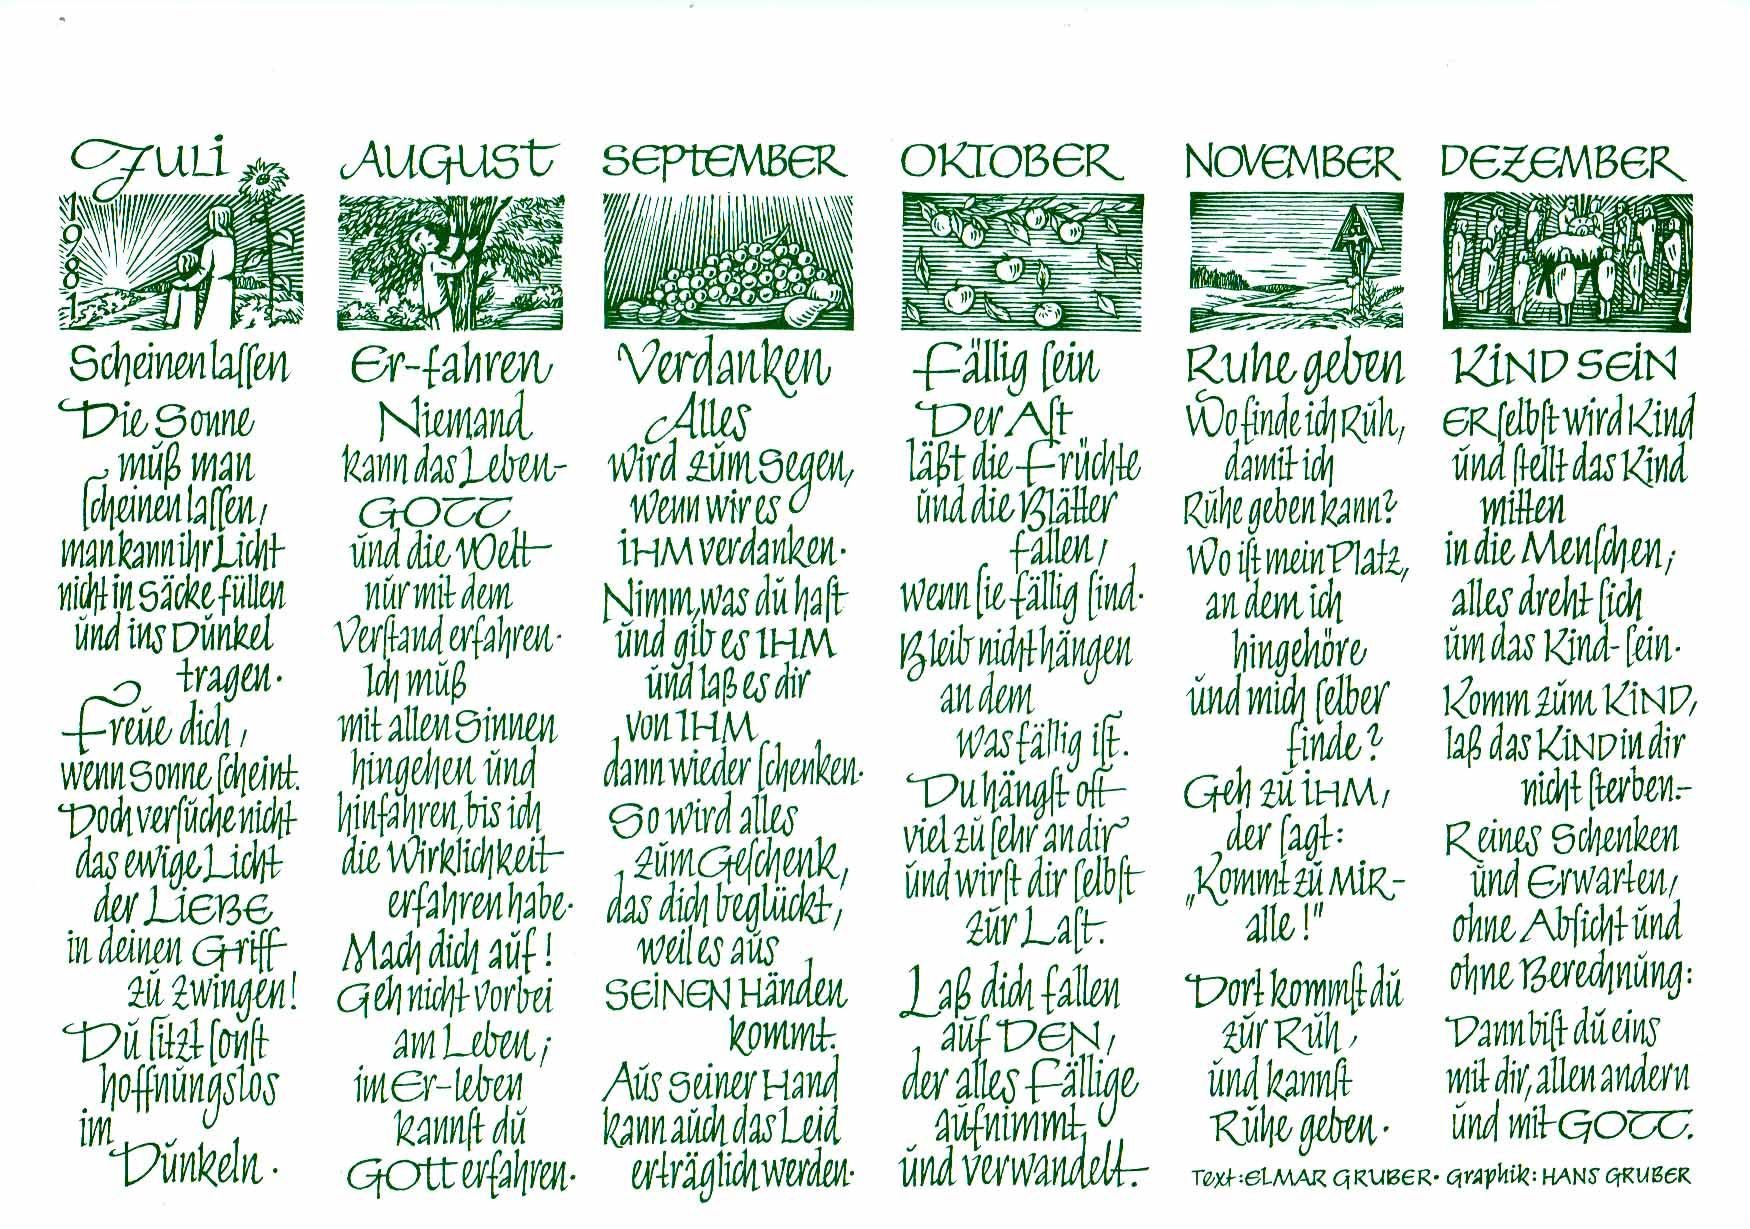 JULI
1981
Scheinen laſſen
Die Sonne
muß man
ſcheinen laſſen,
man kann ihr Licht
nicht in Säcke füllen
und ins Dunkel
tragen.
Freue dich,
wenn Sonne ſcheint.
Doch verſuche nicht
das ewige Licht
der LIEBE
in deinen Griff
zu zwingen!
Du ſitzt ſonſt
hoffnungslos
im
Dunkeln.
AUGUST
Er-fahren
Niemand
kann das Leben-
GOTT
und die Welt
nur mit dem
Verſtand erfahren.
Ich muß
mit allen Sinnen
hingehen und
hinfahren, bis ich
die Wirklichkeit
erfahren habe.
Mach dich auf!
Geh nicht vorbei
am Leben;
im Er-leben
kannſt du
GOTT erfahren.
SEPTEMBER
Verdanken
Alles
wird zum Segen,
wenn wir es
IHM verdanken.
Nimm, was du haſt
und gib es IHM
und laß es dir
von IHM
dann wieder ſchenken.
So wird alles
zum Geſchenk,
das dich beglückt,
weil es aus
SEINEN Händen
kommt.
Aus Seiner Hand
kann auch das Leid
erträglich werden.
OKTOBER
Fällig ſein
Der Aſt
läßt die Früchte
und die Blätter
fallen,
wenn ſie fällig ſind.
Bleib nicht hängen
an dem
was fällig iſt.
Du hängſt oft
viel zu ſehr an dir
und wirſt dir ſelbſt
zur Laſt.
Laß dich fallen
auf DEN,
der alles Fällige
aufnimmt
und verwandelt.
NOVEMBER
Ruhe geben
Wo finde ich Ruh,
damit ich
Ruhe geben kann?
Wo iſt mein Platz,
an dem ich
hingehöre
und mich ſelber
finde?
Geh zu IHM,
der ſagt:
„Kommt zu MIR-
alle!"
Dort kommſt du
zur Ruh,
und kannſt
Ruhe geben.
DEZEMBER
KIND SEIN
ER ſelbſt wird Kind
und ſtellt das Kind
mitten
in die Menſchen;
alles dreht ſich
um das Kind-ſein.
Komm zum KIND,
laß das KIND in dir
nicht ſterben.-
Reines Schenken
und Erwarten,
ohne Abſicht und
ohne Berechnung:
Dann biſt du eins
mit dir, allen andern
und mit GOTT.
Text: ELMAR GRUBER · Graphik: HANS GRUBER